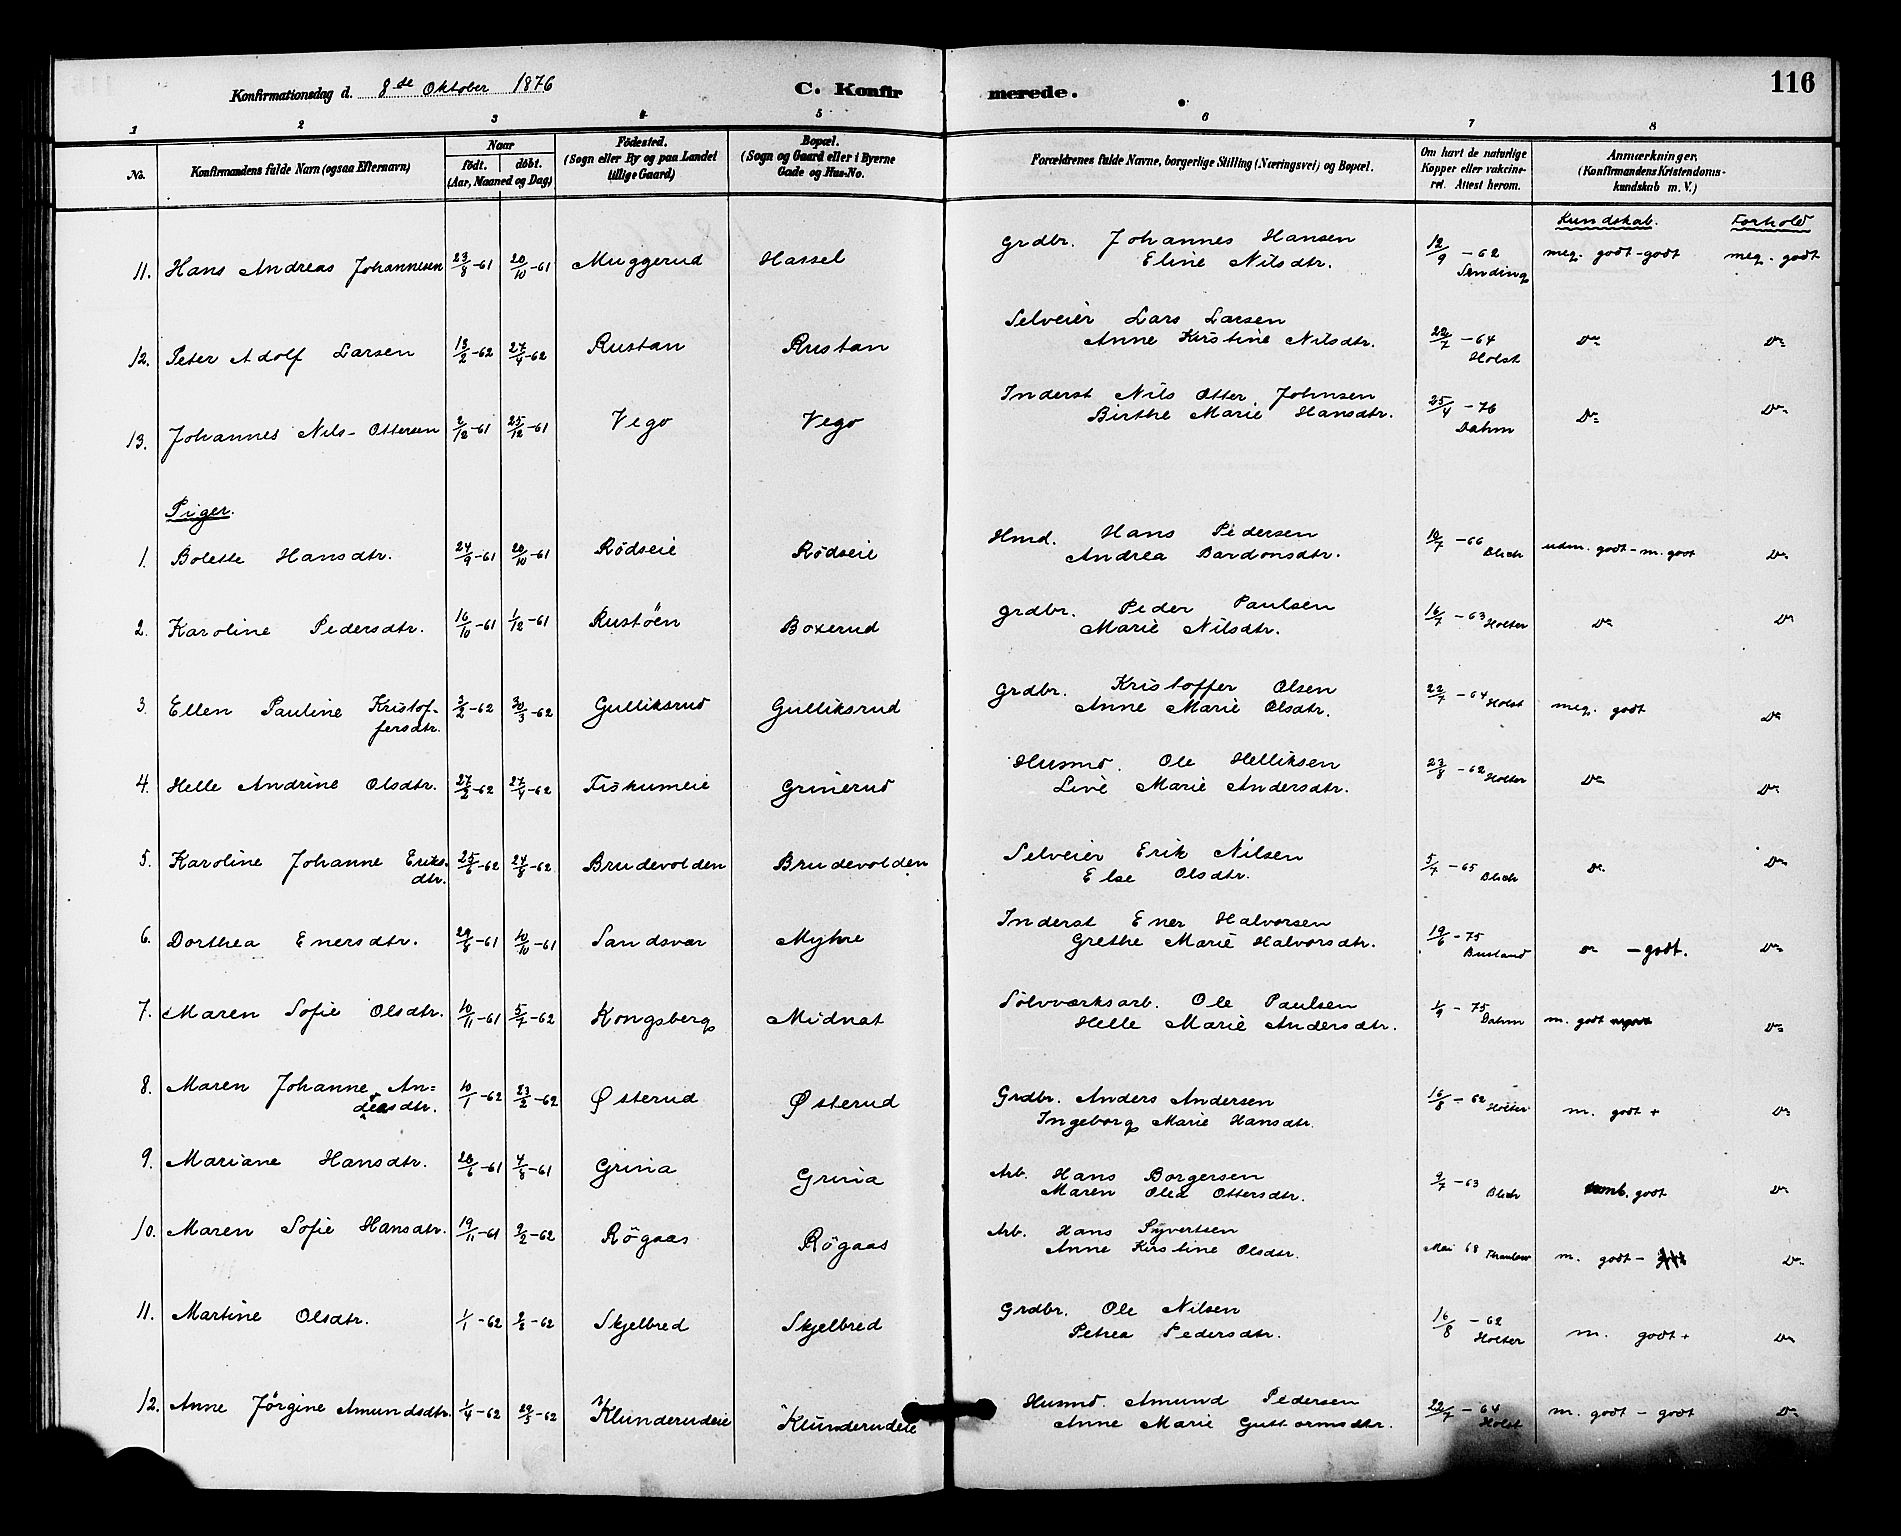 116
Konfirmationsdag d. 8de Oktober 1876 C. Konfirmerede.
1 2 3 4 5 6 7 8
No. Konfirmandens fulde Navn (ogsaa Efternavn) Naar födt. döbt. (Aar, Maaned og Dag) Födested. (Sogn eller By og paa Landet tillige Gaard) Bopæl. (Sogn og Gaard eller i Byerne Gade og Hus-No. Forældrenes fulde Navne, borgerlige Stilling (Næringsvei) og Bopæl. Om havt de naturlige Kopper eller vakcineret. Attest herom. Anmærkninger. (Konfirmandens Kristendomskundskab m. V.)
Kundskab. Forhold
11. Hans Andreas Johannesen 23/8-61 20/10-61 Muggerud Hassel Grdbr. Johannes Hansen
Eline Nilsdtr. 12/9-62 meg. godt-godt meg. godt
12. Peter Adolf Larsen 27/4-62 Rustan Rustan Selveier Lars Larsen
Anne Kirstine Nilsdtr. 22/7-64 Holst Do Do
13. Johannes Nils-Ottersen 2/12-61 25/12-61 Vego Vego Inderst Nils Otter Johnsen
Birthe Marie Hansdtr. 25/4-76 Dahm Do Do
Piger.
1. Bolette Hansdtr. 24/9-61 20/10-61 Rödseie Rödseie Hmd. Hans Pedersen
Andrea Bardonsdtr. -66 Blich udm. godt-m. godt Do
2. Karoline Pedersdtr. 16/10-61 1/12-61 Rustöen Boxerud Grdbr. Peder Paulsen
Marie Nilsdtr. 16/7-63 Holter Do Do
3. Ellen Pauline Kristoffersdtr. 3/2-62 30/3-62 Gulliksrud Gulliksrud Grdbr. Kristoffer Olsen
Anne Marie Olsdtr. 22/7-64 Holst meg. godt Do
4. Helle Andrine Olsdtr. 27/2-62 27/4-62 Fiskumeie Grinerud Husmd. Ole Helliksen
Live Marie Andersdtr. 23/8-62 Holter Do Do
5. Karoline Johanne Eriksdtr. 24/8-62 Brudevolden Brudevolden Selveier Erik Nilsen
Else Olsdtr. 5/7-65 Blich Do Do
6. Dorthea Enersdtr. 29/8-61 10/10-61 Sandsvær Myhre Inderst Ener Halvorsen
Grethe Marie Halvorsdtr. 19/6-75 Busland Do -godt. Do
7. Maren Sofie Olsdtr. 10/11-61 5/7-62 Kongsberg Midnat Sölvværksarb. Ole Paulsen
Helle Marie Andersdtr. 1/9-75 Dahm m. godt Do
8. Maren Johanne Andersdtr. 10/1-62 23/2-62 Østerud Østerud Grdbr. Anders Andersen
Ingeborg Marie Hansdtr. 16/8-62 Holter m. godt + Do
9. Mariane Hansdtr. 4/8-61 Grina Grina Arb. Hans Borgersen
Maren Olea Ottersdtr. 9/7-63 Blich godt Do
10. Maren Sofie Hansdtr. 19/11-61 9/2-62 Rögaas Rögaas Arb. Hans Syvertsen
Anne Kirstine Olsdtr. Mai 68 m. godt- Do
11. Martine Olsdtr. 1/1-62 Skjelbred Skjelbred Grdbr. Ole Nilsen
Petrea Pedersdtr. 16/8-62 Holter m. godt + Do
12. Anne Jörgine Amundsdtr. 1/4-62 29/5-62 Klunderudeie Klunderudeie Husmd. Amund Pedersen
Anne Marie Guttormsdtr. 22/7-64 Holst m. godt-godt Do